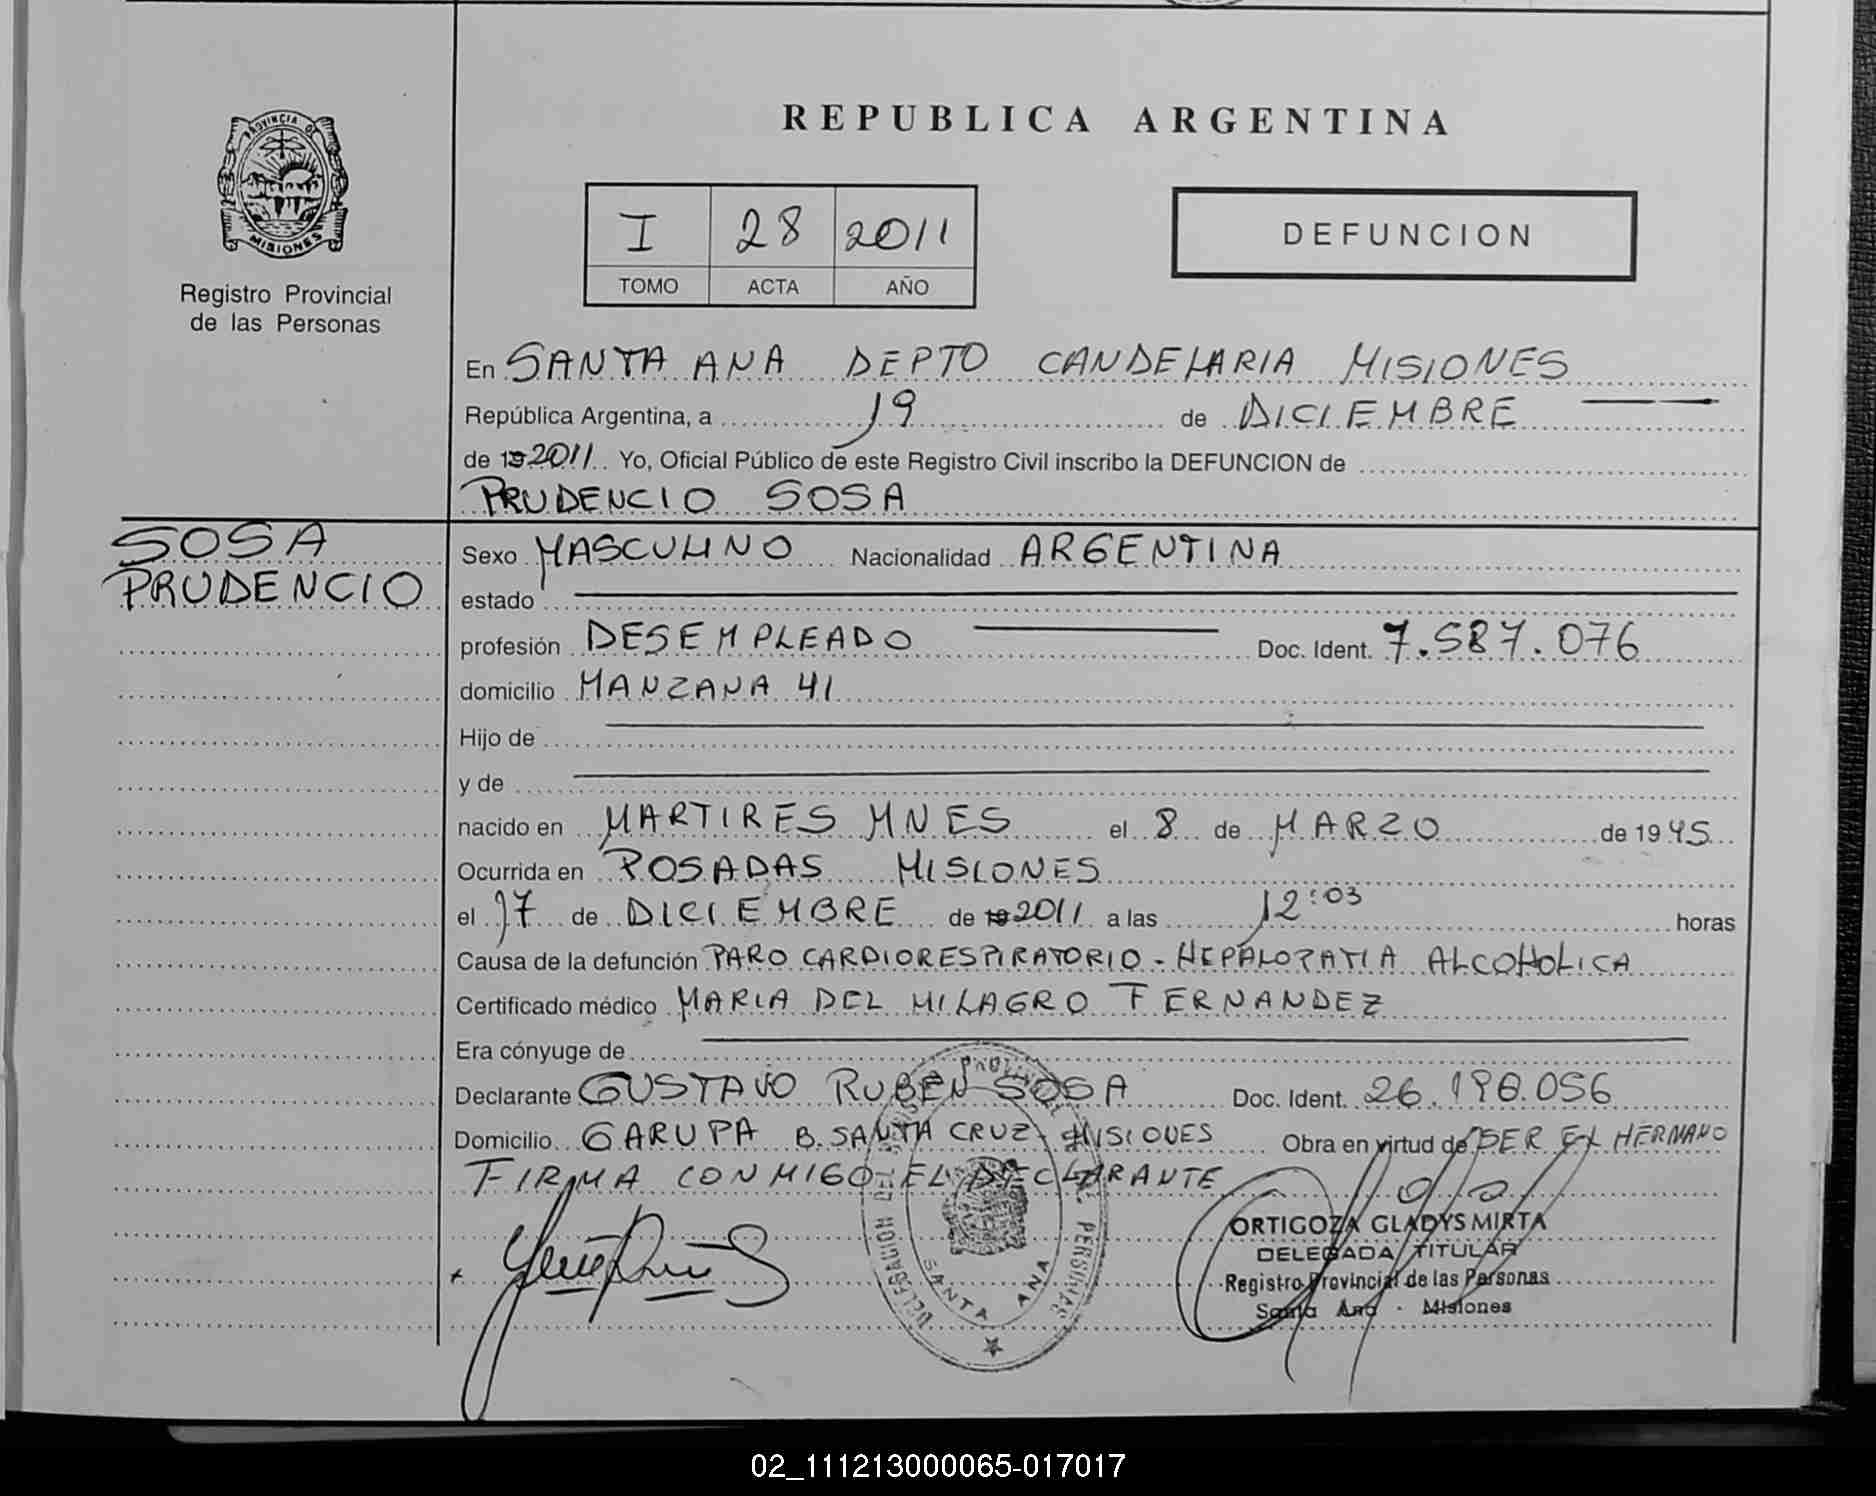 PROVINCIA DE
MISIONES
Registro Provincial
de las Personas
REPUBLICA ARGENTINA
I 28 2011
TOMO ACTA AÑO
DEFUNCION
En SANTA ANA DEPTO CANDELARIA MISIONES
República Argentina, a 19 de DICIEMBRE
de 19 2011 Yo, Oficial Público de este Registro Civil inscribo la DEFUNCION de
PRUDENCIO SOSA
SOSA
PRUDENCIO
Sexo MASCULINO Nacionalidad ARGENTINA
estado
profesión DESEMPLEADO Doc. Ident. 7.587.076
domicilio MANZANA 41
Hijo de
y de
nacido en MARTIRES MNES el 8 de MARZO de 1945
Ocurrida en POSADAS MISIONES
el 17 de DICIEMBRE de 19 2011 a las 12:03 horas
Causa de la defunción PARO CARDIORESPIRATORIO - HEPALOPATIA ALCOHOLICA
Certificado médico MARIA DEL MILAGRO FERNANDEZ
Era cónyuge de
Declarante GUSTAVO RUBEN SOSA Doc. Ident. 26.198.056
Domicilio GARUPA B. SANTA CRUZ - MISIONES Obra en virtud de SER EL HERMANO
FIRMA CONMIGO EL DECLARANTE
SANTA ANA
ORTIGOZA GLADYS MIRTA
DELEGADA TITULAR
Registro Provincial de las Personas
Santa Ana - Misiones
02_111213000065-017017